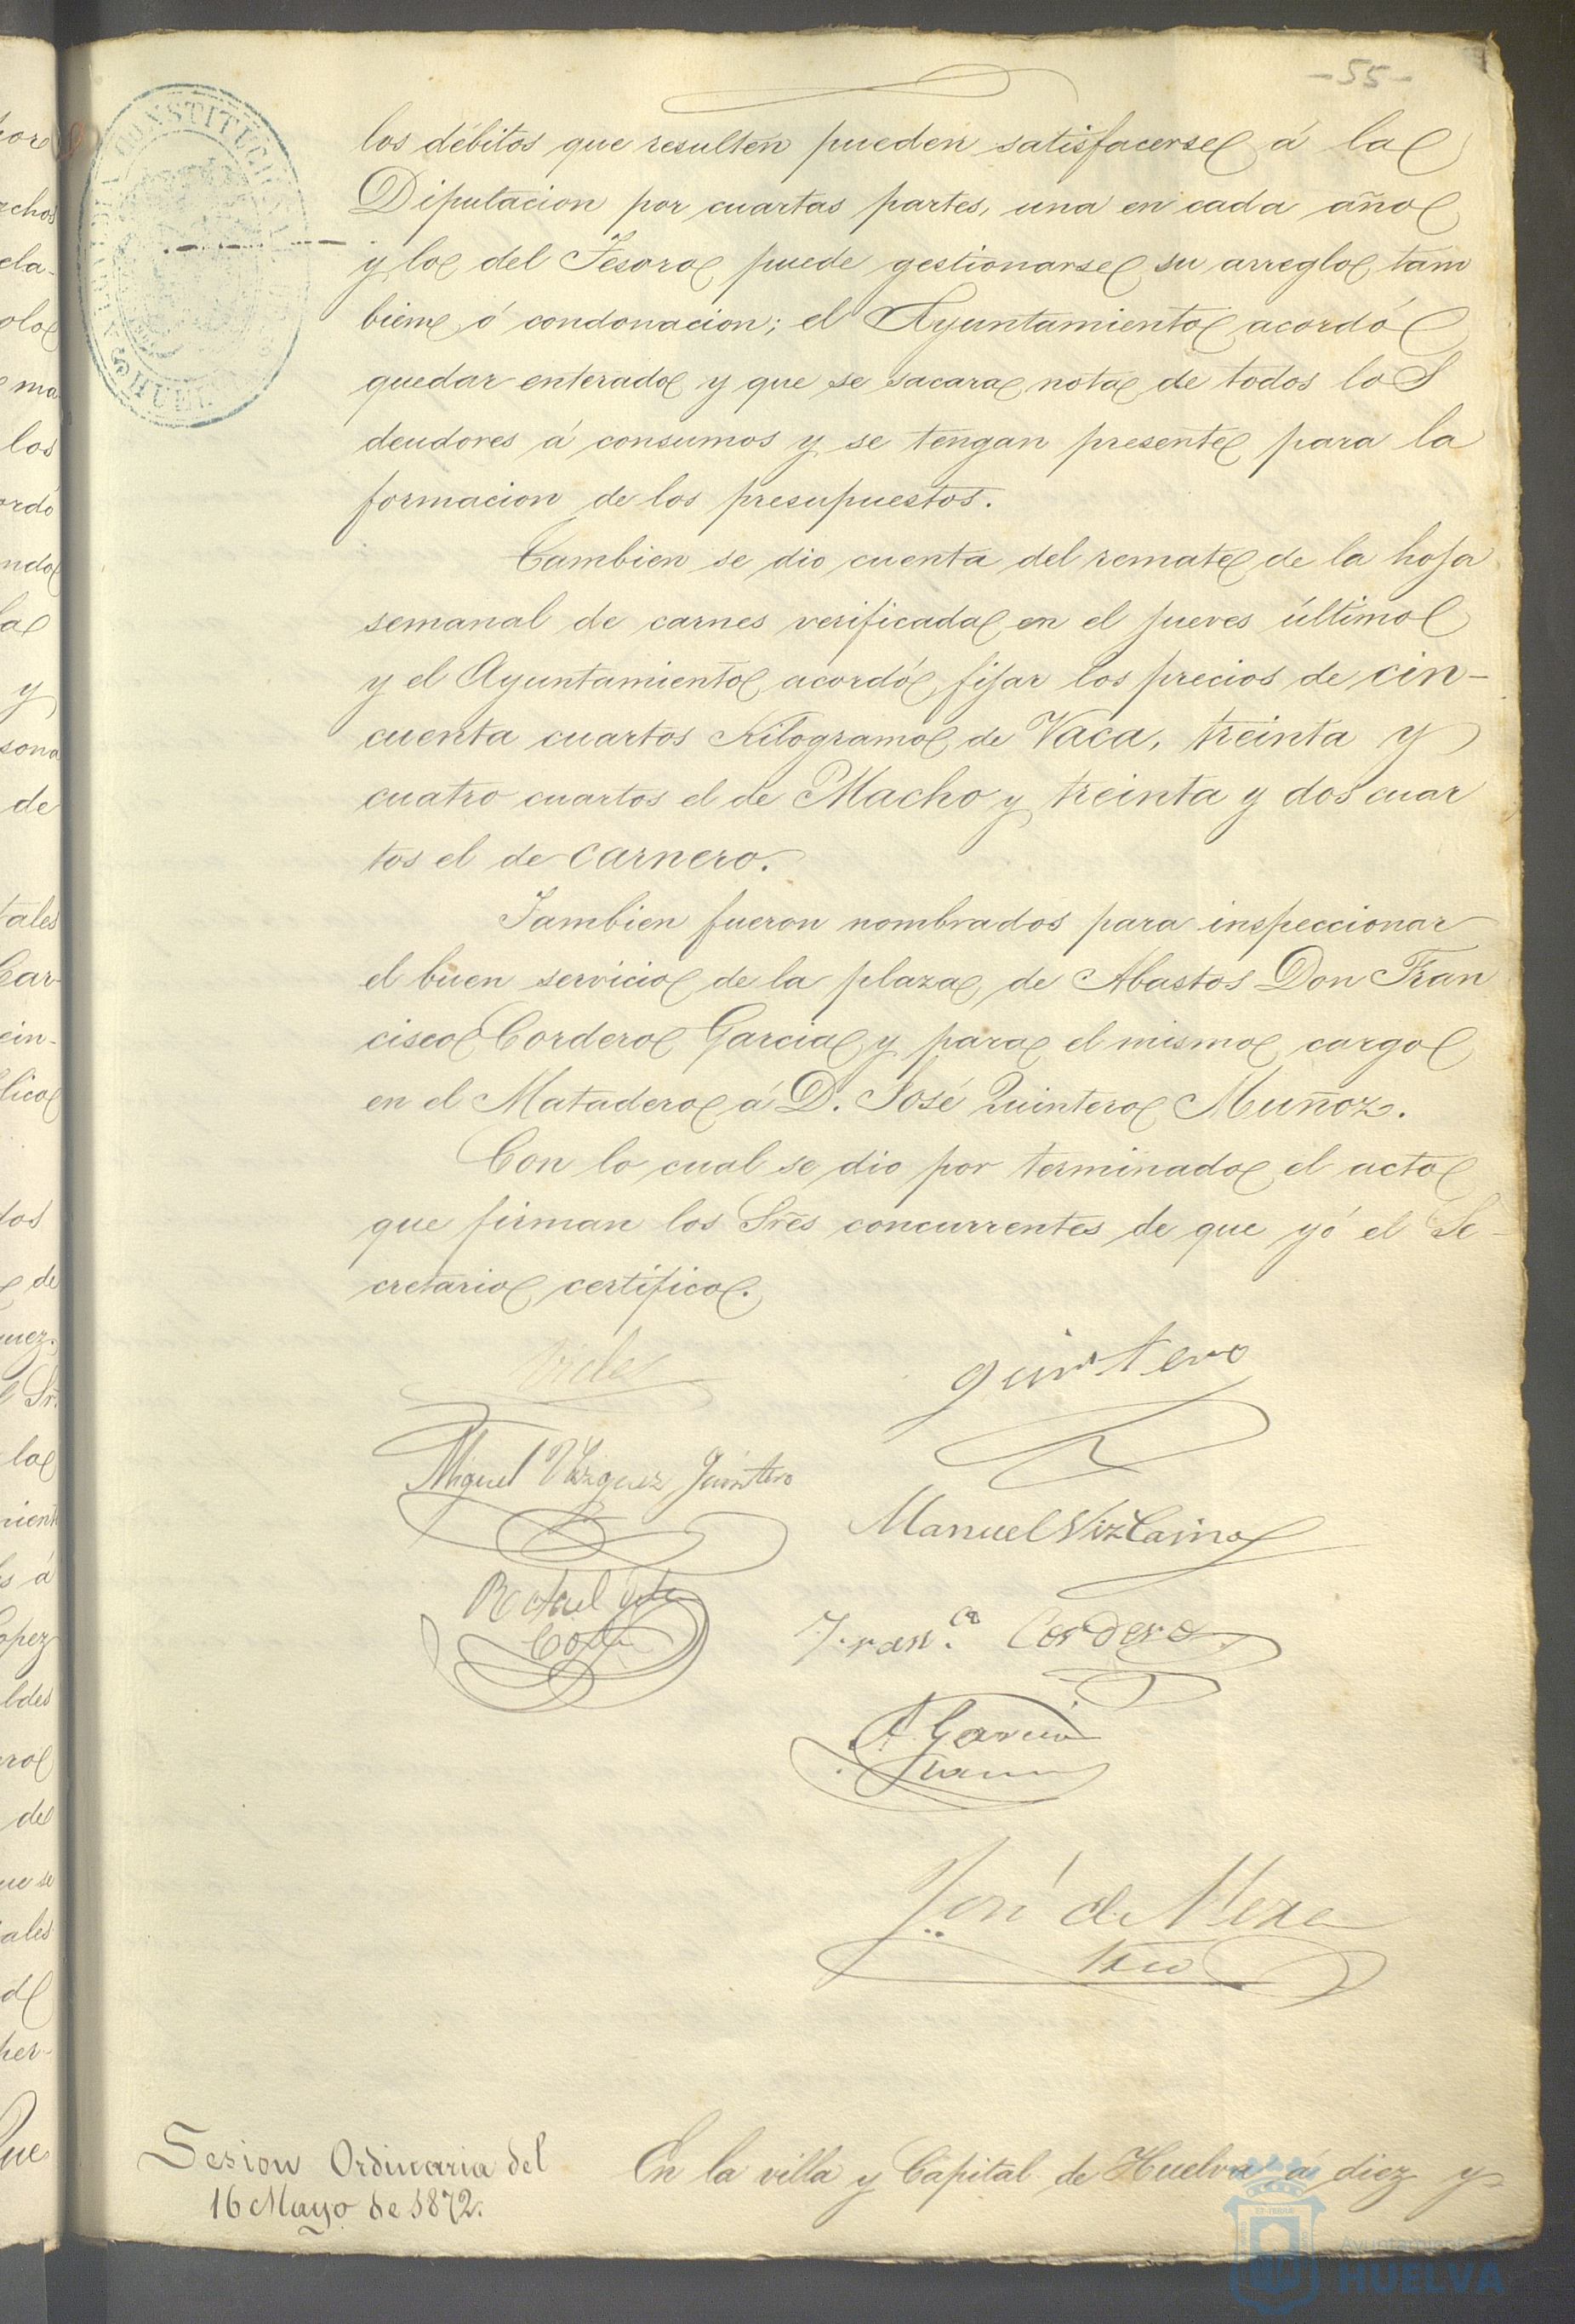 -55-
los débitos que resulten pueden satisfacerse á la
Diputacion por cuartas partes, una en cada año
y lo del Tesoro puede gestionarse su arreglo tam
bien ó condonacion; el Ayuntamiento acordó
quedar enterado y que se sacara nota de todos los
deudores á consumos y se tengan presente para la
formacion de los presupuestos.
Tambien se dio cuenta del remate de la hoja
semanal de carnes verificada en el jueves último
y el Ayuntamiento acordó fijar los precios de cin-
cuenta cuartos Kilogramo de Vaca, treinta y
cuatro cuartos el de Macho y treinta y dos cuar
tos el de carnero.
Tambien fueron nombrados para inspeccionar
el buen servicio de la plaza de Abastos Don Fran
cisco Cordero Garcia y para el mismo cargo
en el Matadero á D. José Quintero Muñoz.
Con lo cual se dio por terminado el acto
que firman los Sres concurrentes de que yó el Se-
cretario certifico.
quintero
Miguel Vazquez Quintero
Manuel Vizcaino
Rafael
Franco. Cordero
A. Garcia
José de Mexa
Srio
Sesion Ordinaria del
16 Mayo de 1872.
En la villa y Capital de Huelva á diez y
Ayuntamiento de
HUELVA